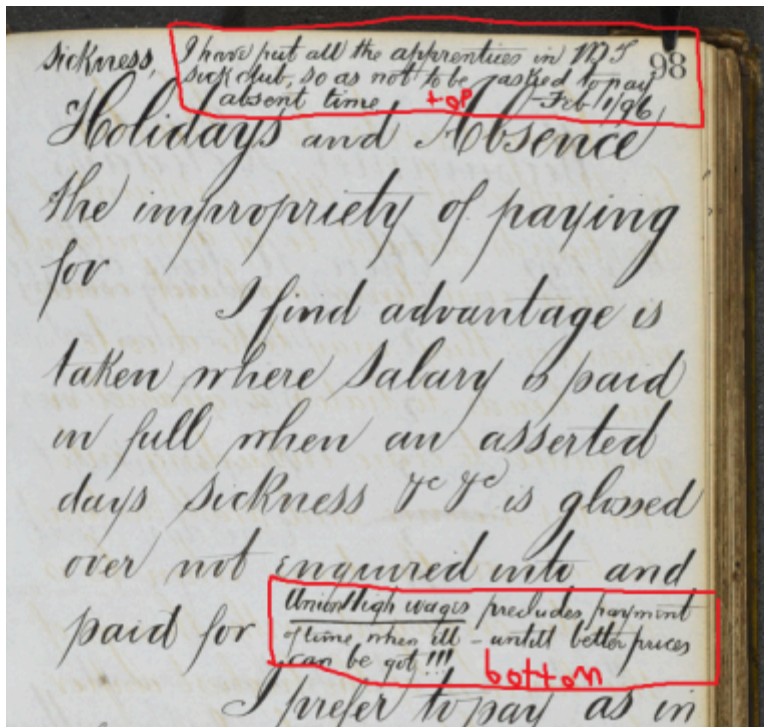 sickness, I have put all the apprentices in
sick club, so as not to be asked to pay
absent time top Feb 1/96
98
Holidays and Absence
the impropriety of paying
for
I find advantage is
taken where Salary is paid
in full when an asserted
days sickness &c &c is glossed
over not enquired into and
paid for
Union High wages precludes payment
of time when ill - untill better prices
can be got!!!
botton
I prefer to pay as in